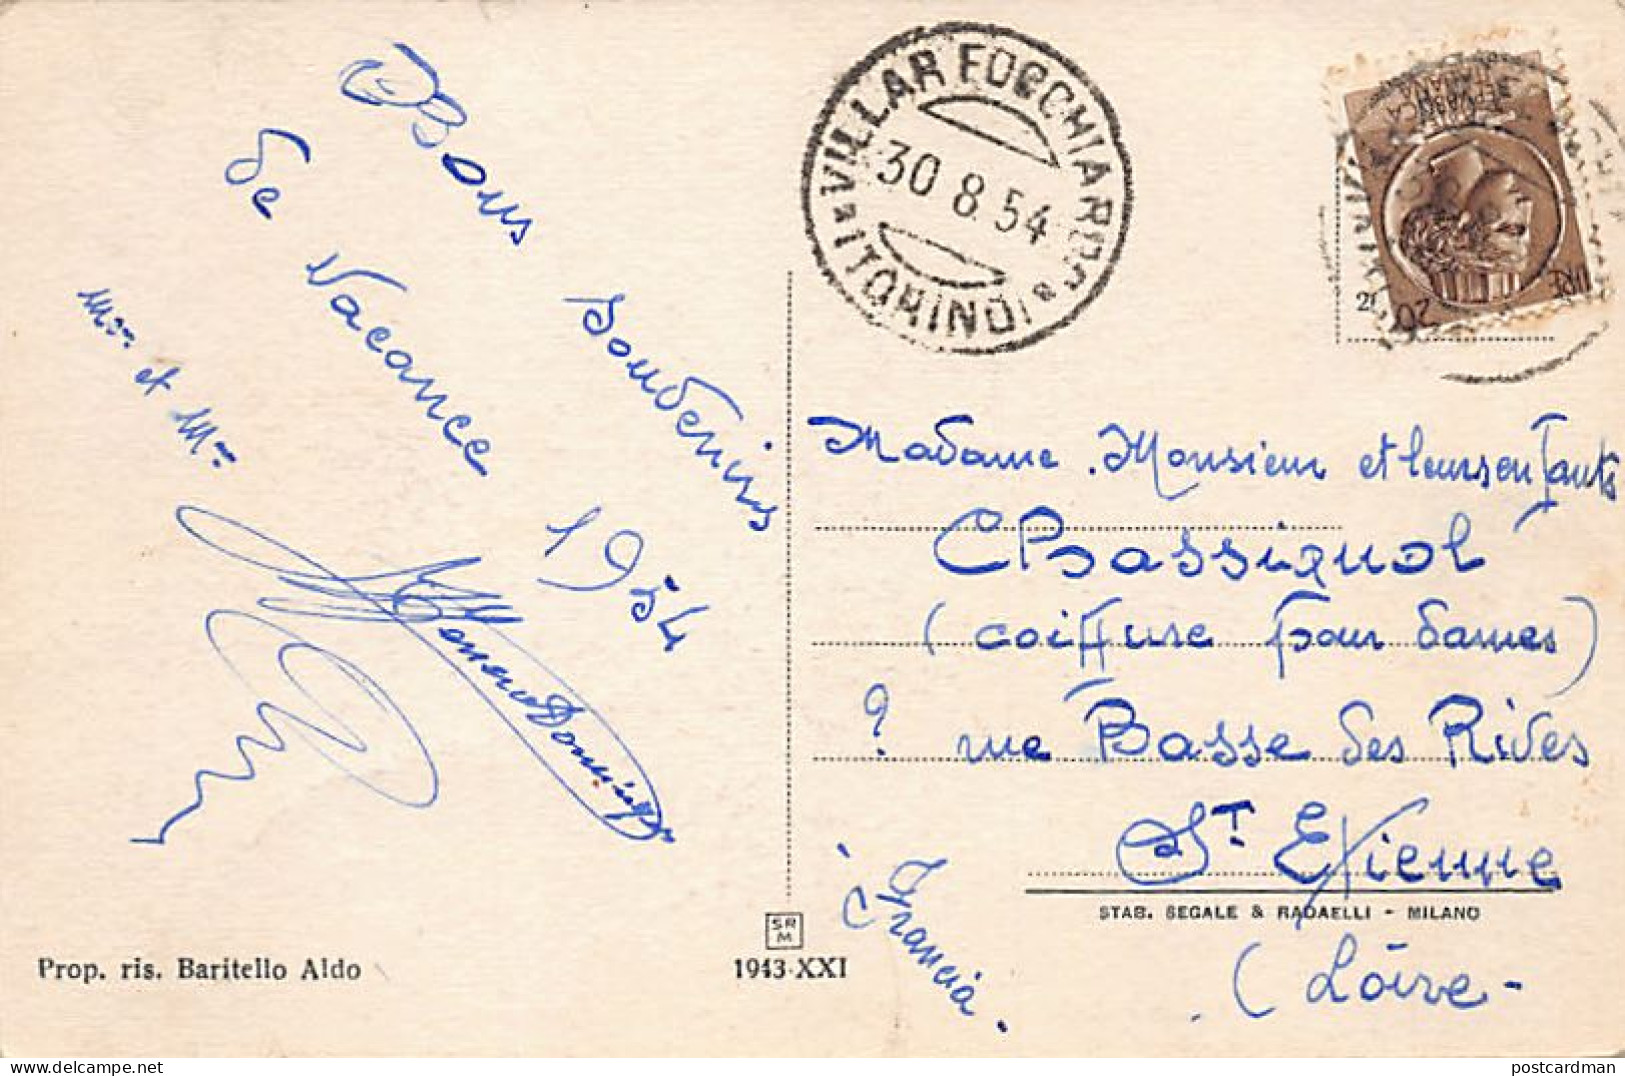 Bons souvenirs
de vacance
1954
Mme et Mr
VILLAR FOCCHIARDO
30 8 54
(TORINO)
REPVBBLICA
ITALIANA
Madame Monsieur et leurs enfants
Chassignol
(coiffure pour dames)
9 rue Basse des Rives
St Etienne
(Loire -
Francia.
STAB. SEGALE & RADAELLI - MILANO
SR
M
1943-XXI
Prop. ris. Baritello Aldo
postcardman